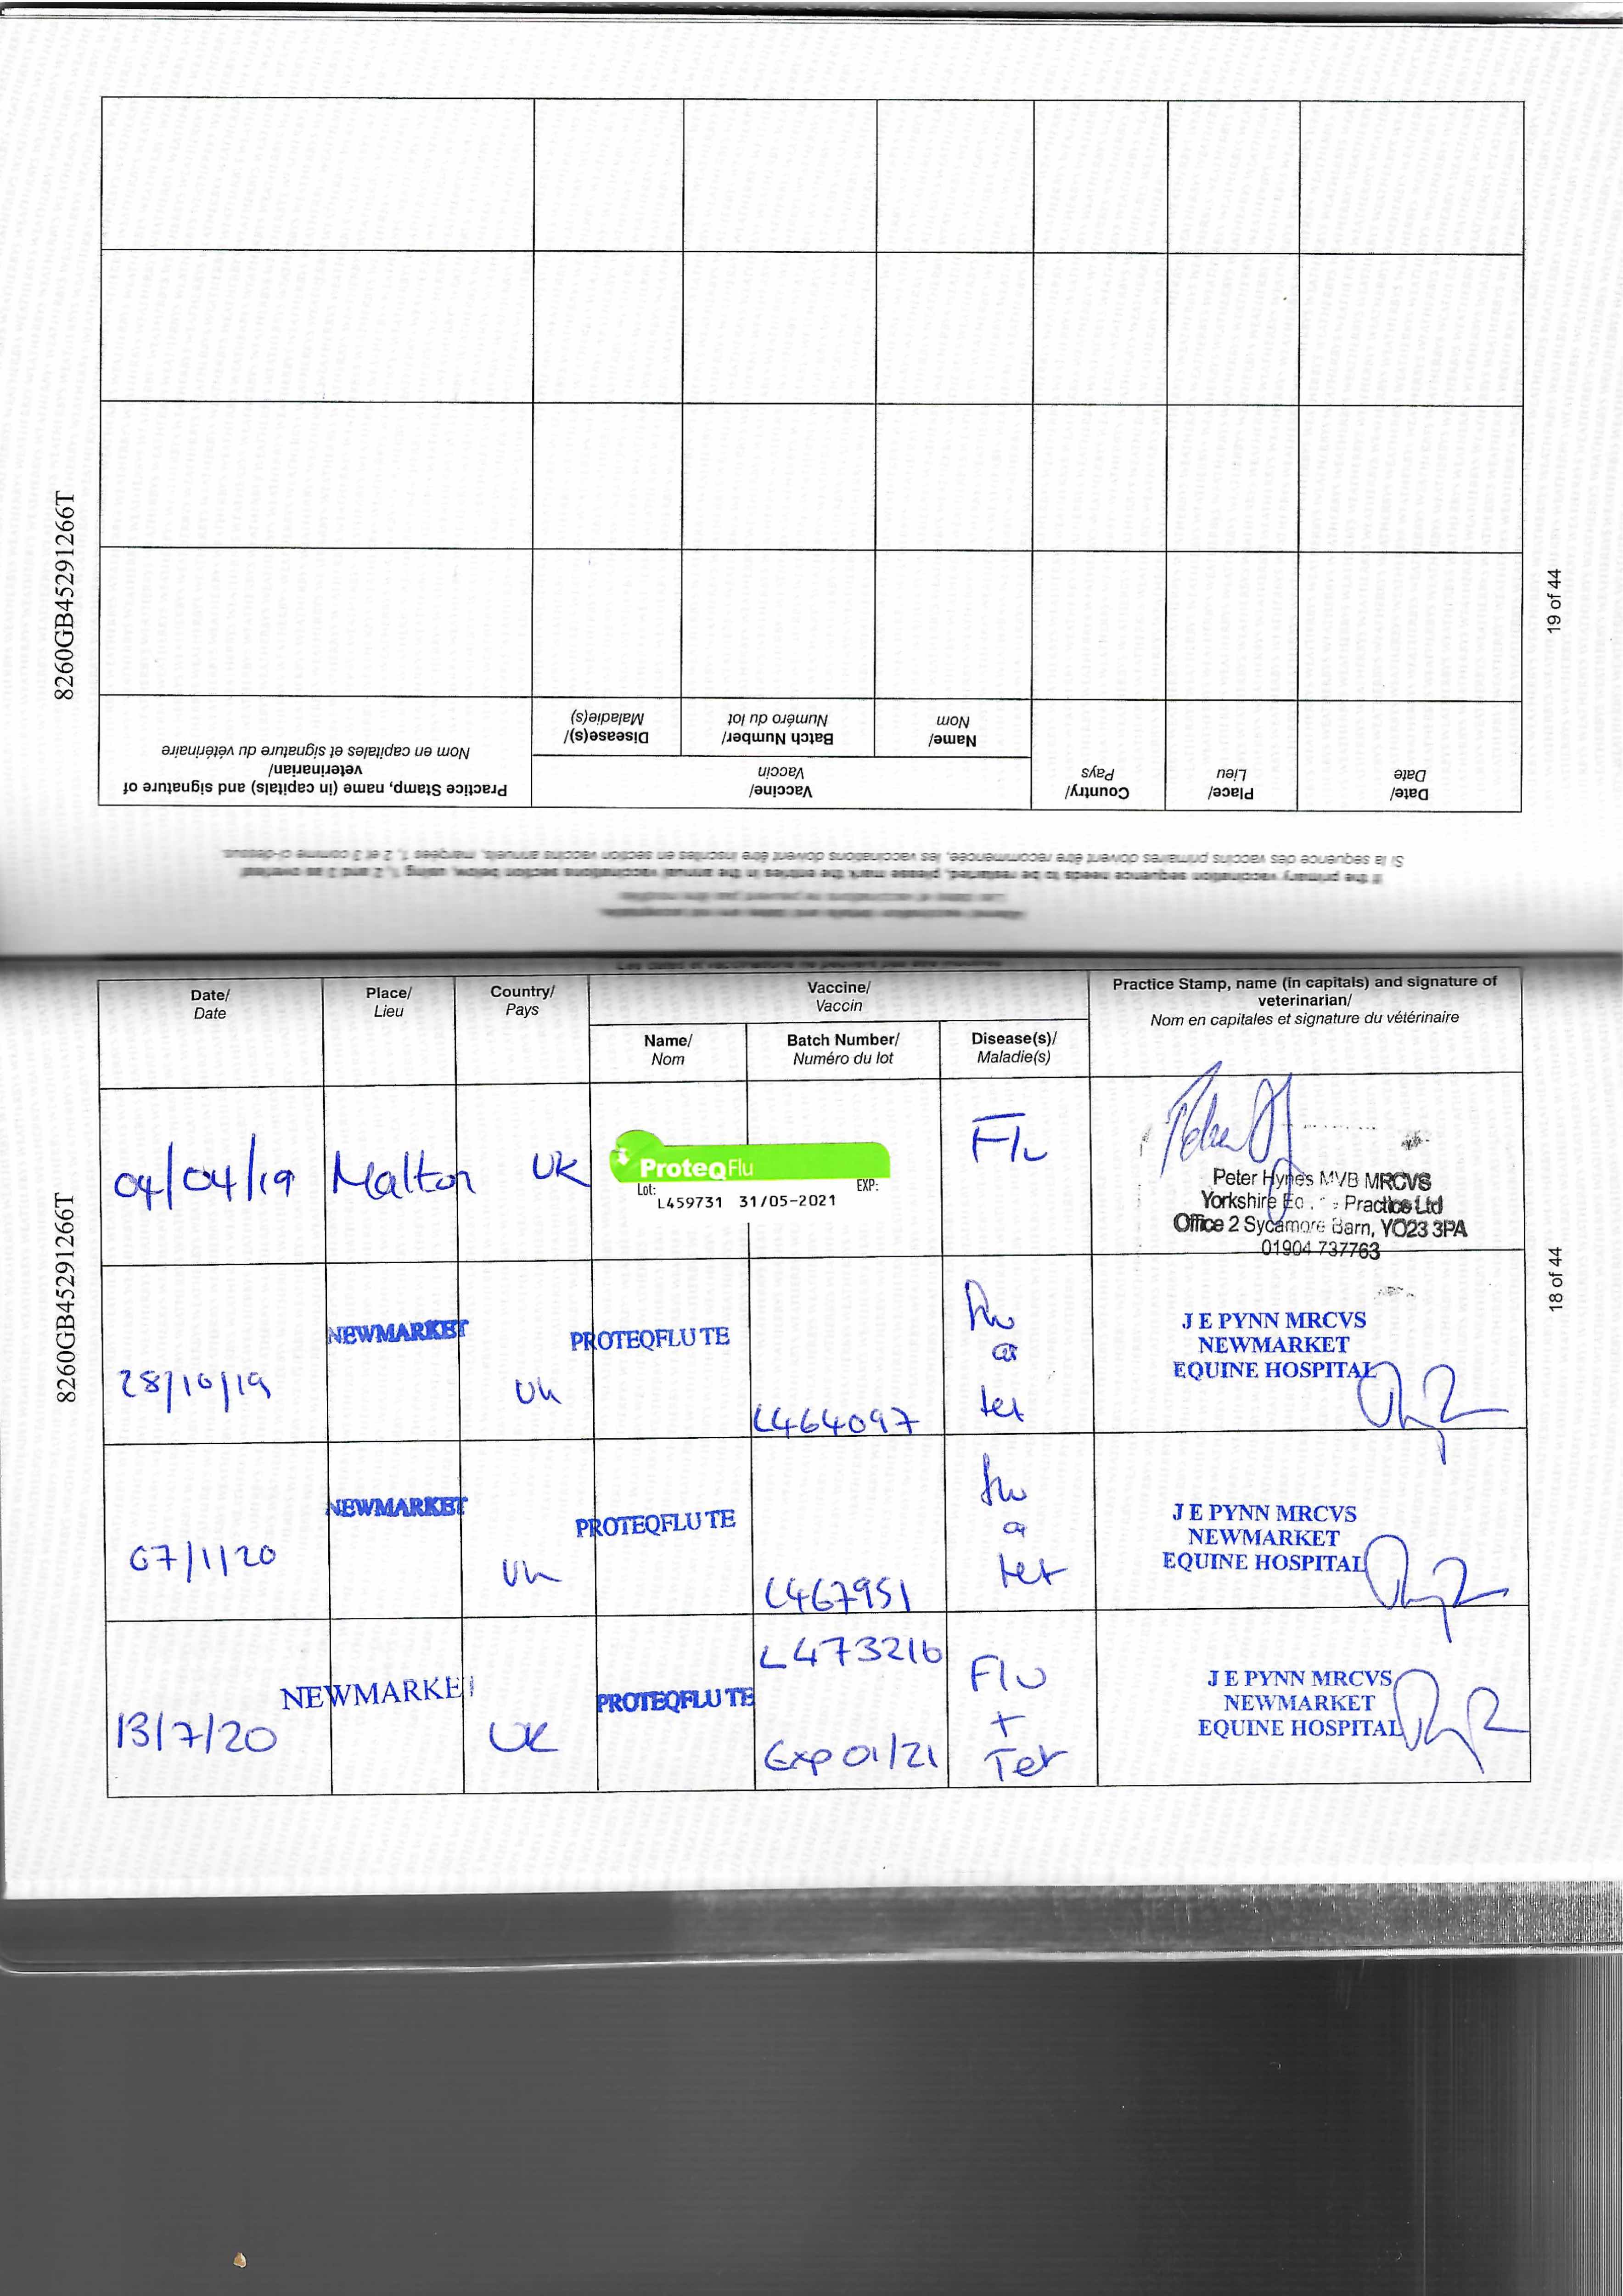 8260GB45291266T
19 of 44
Si la séquence des vaccins primaires doivent être recommencée, les vaccinations doivent être inscrites en section vaccins annuels, marqées 1, 2 et 3 comme ci-dessus.
If the primary vaccination sequence needs to be restarted, please mark the entries in the annual vaccinations section below, using 1, 2 and 3 as overleaf
Date/
Date
Place/
Lieu
Country/
Pays
Vaccine/
Vaccin
Name/
Nom
Batch Number/
Numéro du lot
Disease(s)/
Maladie(s)
Practice Stamp, name (in capitals) and signature of
veterinarian/
Nom en capitales et signature du vétérinaire
8260GB45291266T
18 of 44
Date/
Date
Place/
Lieu
Country/
Pays
Vaccine/
Vaccin
Name/
Nom
Batch Number/
Numéro du lot
Disease(s)/
Maladie(s)
Practice Stamp, name (in capitals) and signature of
veterinarian/
Nom en capitales et signature du vétérinaire
04/04/19 Malton UK
ProteqFlu
Lot: EXP:
L459731 31/05-2021
Flu
Peter Hynes MVB MRCVS
Yorkshire Practice Ltd
Office 2 Sycamore Barn, YO23 3PA
01904 737763
28/10/19
NEWMARKET
Uk
PROTEQFLU TE
L464097
flu
tet
J E PYNN MRCVS
NEWMARKET
EQUINE HOSPITAL
07/1/20
NEWMARKET
Uk
PROTEQFLU TE
L467951
flu
tet
J E PYNN MRCVS
NEWMARKET
EQUINE HOSPITAL
13/7/20
NEWMARKET
UK
PROTEQFLU TE
L473216
Exp 01/21
Flu
+
Tet
J E PYNN MRCVS
NEWMARKET
EQUINE HOSPITAL